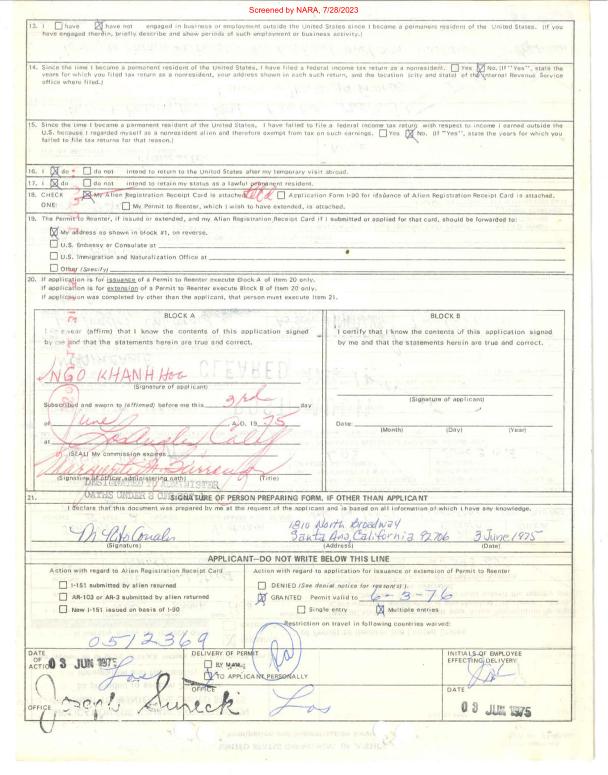 Screened by NARA, 7/28/2023
13. I ☐ have ☒ have not engaged in business or employment outside the United States since I became a permanent resident of the United States. (If you
have engaged therein, briefly describe and show periods of such employment or business activity.)
14. Since the time I became a permanent resident of the United States, I have filed a federal income tax return as a nonresident. ☐ Yes ☒ No. (If "Yes", state the
years for which you filed tax return as a nonresident, your address shown in each such return, and the location (city and state) of the Internal Revenue Service
office where filed.)
15. Since the time I became a permanent resident of the United States, I have failed to file a federal income tax return with respect to income I earned outside the
U.S. because I regarded myself as a nonresident alien and therefore exempt from tax on such earnings. ☐ Yes ☒ No. (If "Yes", state the years for which you
failed to file tax returns for that reason.)
16. I ☒ do ☐ do not intend to return to the United States after my temporary visit abroad.
17. I ☒ do ☐ do not intend to retain my status as a lawful permanent resident.
18. CHECK ☒ My Alien Registration Receipt Card is attached. ☐ Application Form I-90 for issuance of Alien Registration Receipt Card is attached.
ONE: ☐ My Permit to Reenter, which I wish to have extended, is attached.
19. The Permit to Reenter, if issued or extended, and my Alien Registration Receipt Card if I submitted or applied for that card, should be forwarded to:
☒ My address as shown in block #1, on reverse.
☐ U.S. Embassy or Consulate at
☐ U.S. Immigration and Naturalization Office at
☐ Other (Specify)
20. If application is for issuance of a Permit to Reenter execute Block A of item 20 only.
If application is for extension of a Permit to Reenter execute Block B of item 20 only.
If application was completed by other than the applicant, that person must execute Item 21.
BLOCK A
I swear (affirm) that I know the contents of this application signed
by me and that the statements herein are true and correct.
NGO KHANH Hoa
(Signature of applicant)
Subscribed and sworn to (affirmed) before me this 3rd day
of June, A.D. 19 75
at Los Angeles Calif
(SEAL) My commission expires
Marguerite
(Signature of officer administering oath) (Title)
DESIGNATED TO ADMINISTER
OATHS UNDER 8
BLOCK B
I certify that I know the contents of this application signed
by me and that the statements herein are true and correct.
(Signature of applicant)
Date:
(Month) (Day) (Year)
CLEARED
21. SIGNATURE OF PERSON PREPARING FORM, IF OTHER THAN APPLICANT
I declare that this document was prepared by me at the request of the applicant and is based on all information of which I have any knowledge.
1810 North Broadway
Santa Ana, California 92706 3 June 1975
(Signature) (Address) (Date)
APPLICANT—DO NOT WRITE BELOW THIS LINE
Action with regard to Alien Registration Receipt Card
☐ I-151 submitted by alien returned
☐ AR-103 or AR-3 submitted by alien returned
☐ New I-151 issued on basis of I-90
0512369
Action with regard to application for issuance or extension of Permit to Reenter
☐ DENIED (See denial notice for reason(s).)
☒ GRANTED Permit valid to 6-3-76
☐ Single entry ☒ Multiple entries
Restriction on travel in following countries waived:
DATE
OF
ACTION 03 JUN 1975
Los
OFFICE Joseph Sureck
DELIVERY OF PERMIT
☐ BY MAIL
☒ TO APPLICANT PERSONALLY
OFFICE
Los
INITIALS OF EMPLOYEE
EFFECTING DELIVERY
DATE
03 JUN 1975